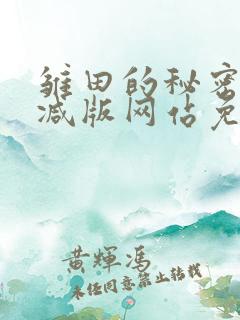 雏田的秘密
减版网站免
黄辉冯
未经同意禁止转载